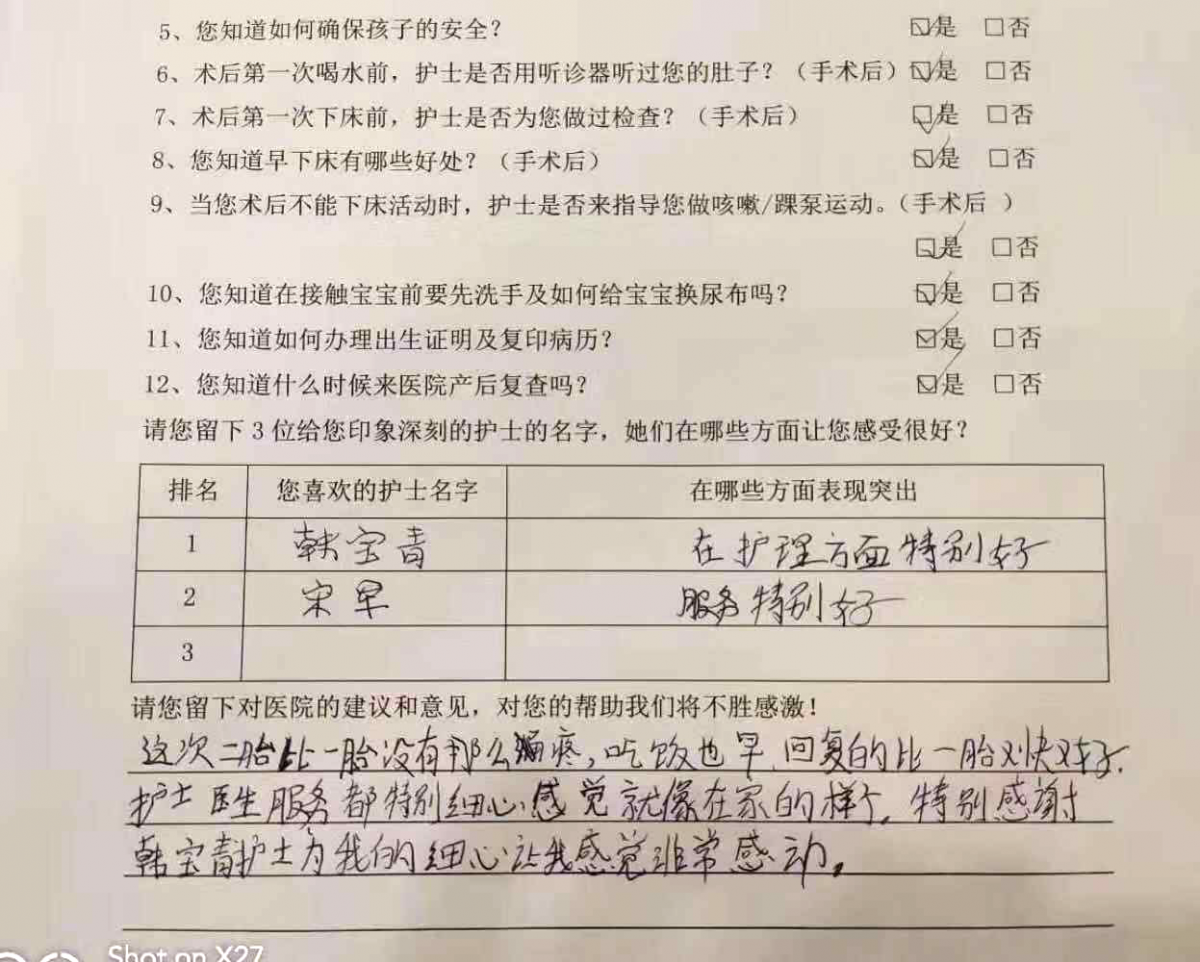 5、您知道如何确保孩子的安全？ ☑是 □否
6、术后第一次喝水前，护士是否用听诊器听过您的肚子？（手术后）☑是 □否
7、术后第一次下床前，护士是否为您做过检查？（手术后） ☑是 □否
8、您知道早下床有哪些好处？（手术后） ☑是 □否
9、当您术后不能下床活动时，护士是否来指导您做咳嗽/踝泵运动。（手术后 ）
☑是 □否
10、您知道在接触宝宝前要先洗手及如何给宝宝换尿布吗？ ☑是 □否
11、您知道如何办理出生证明及复印病历？ ☑是 □否
12、您知道什么时候来医院产后复查吗？ ☑是 □否
请您留下 3 位给您印象深刻的护士的名字，她们在哪些方面让您感受很好？
排名 您喜欢的护士名字 在哪些方面表现突出
1 韩宝青 在护理方面特别好
2 宋早 服务特别好
3
请您留下对医院的建议和意见，对您的帮助我们将不胜感激！
这次二胎比一胎没有那么疼，吃饭也早，回复的比一胎又快又好，
护士医生服务都特别细心感觉就像在家的样子。特别感谢
韩宝青护士为我的细心让我感觉非常感动。
Shot on X27